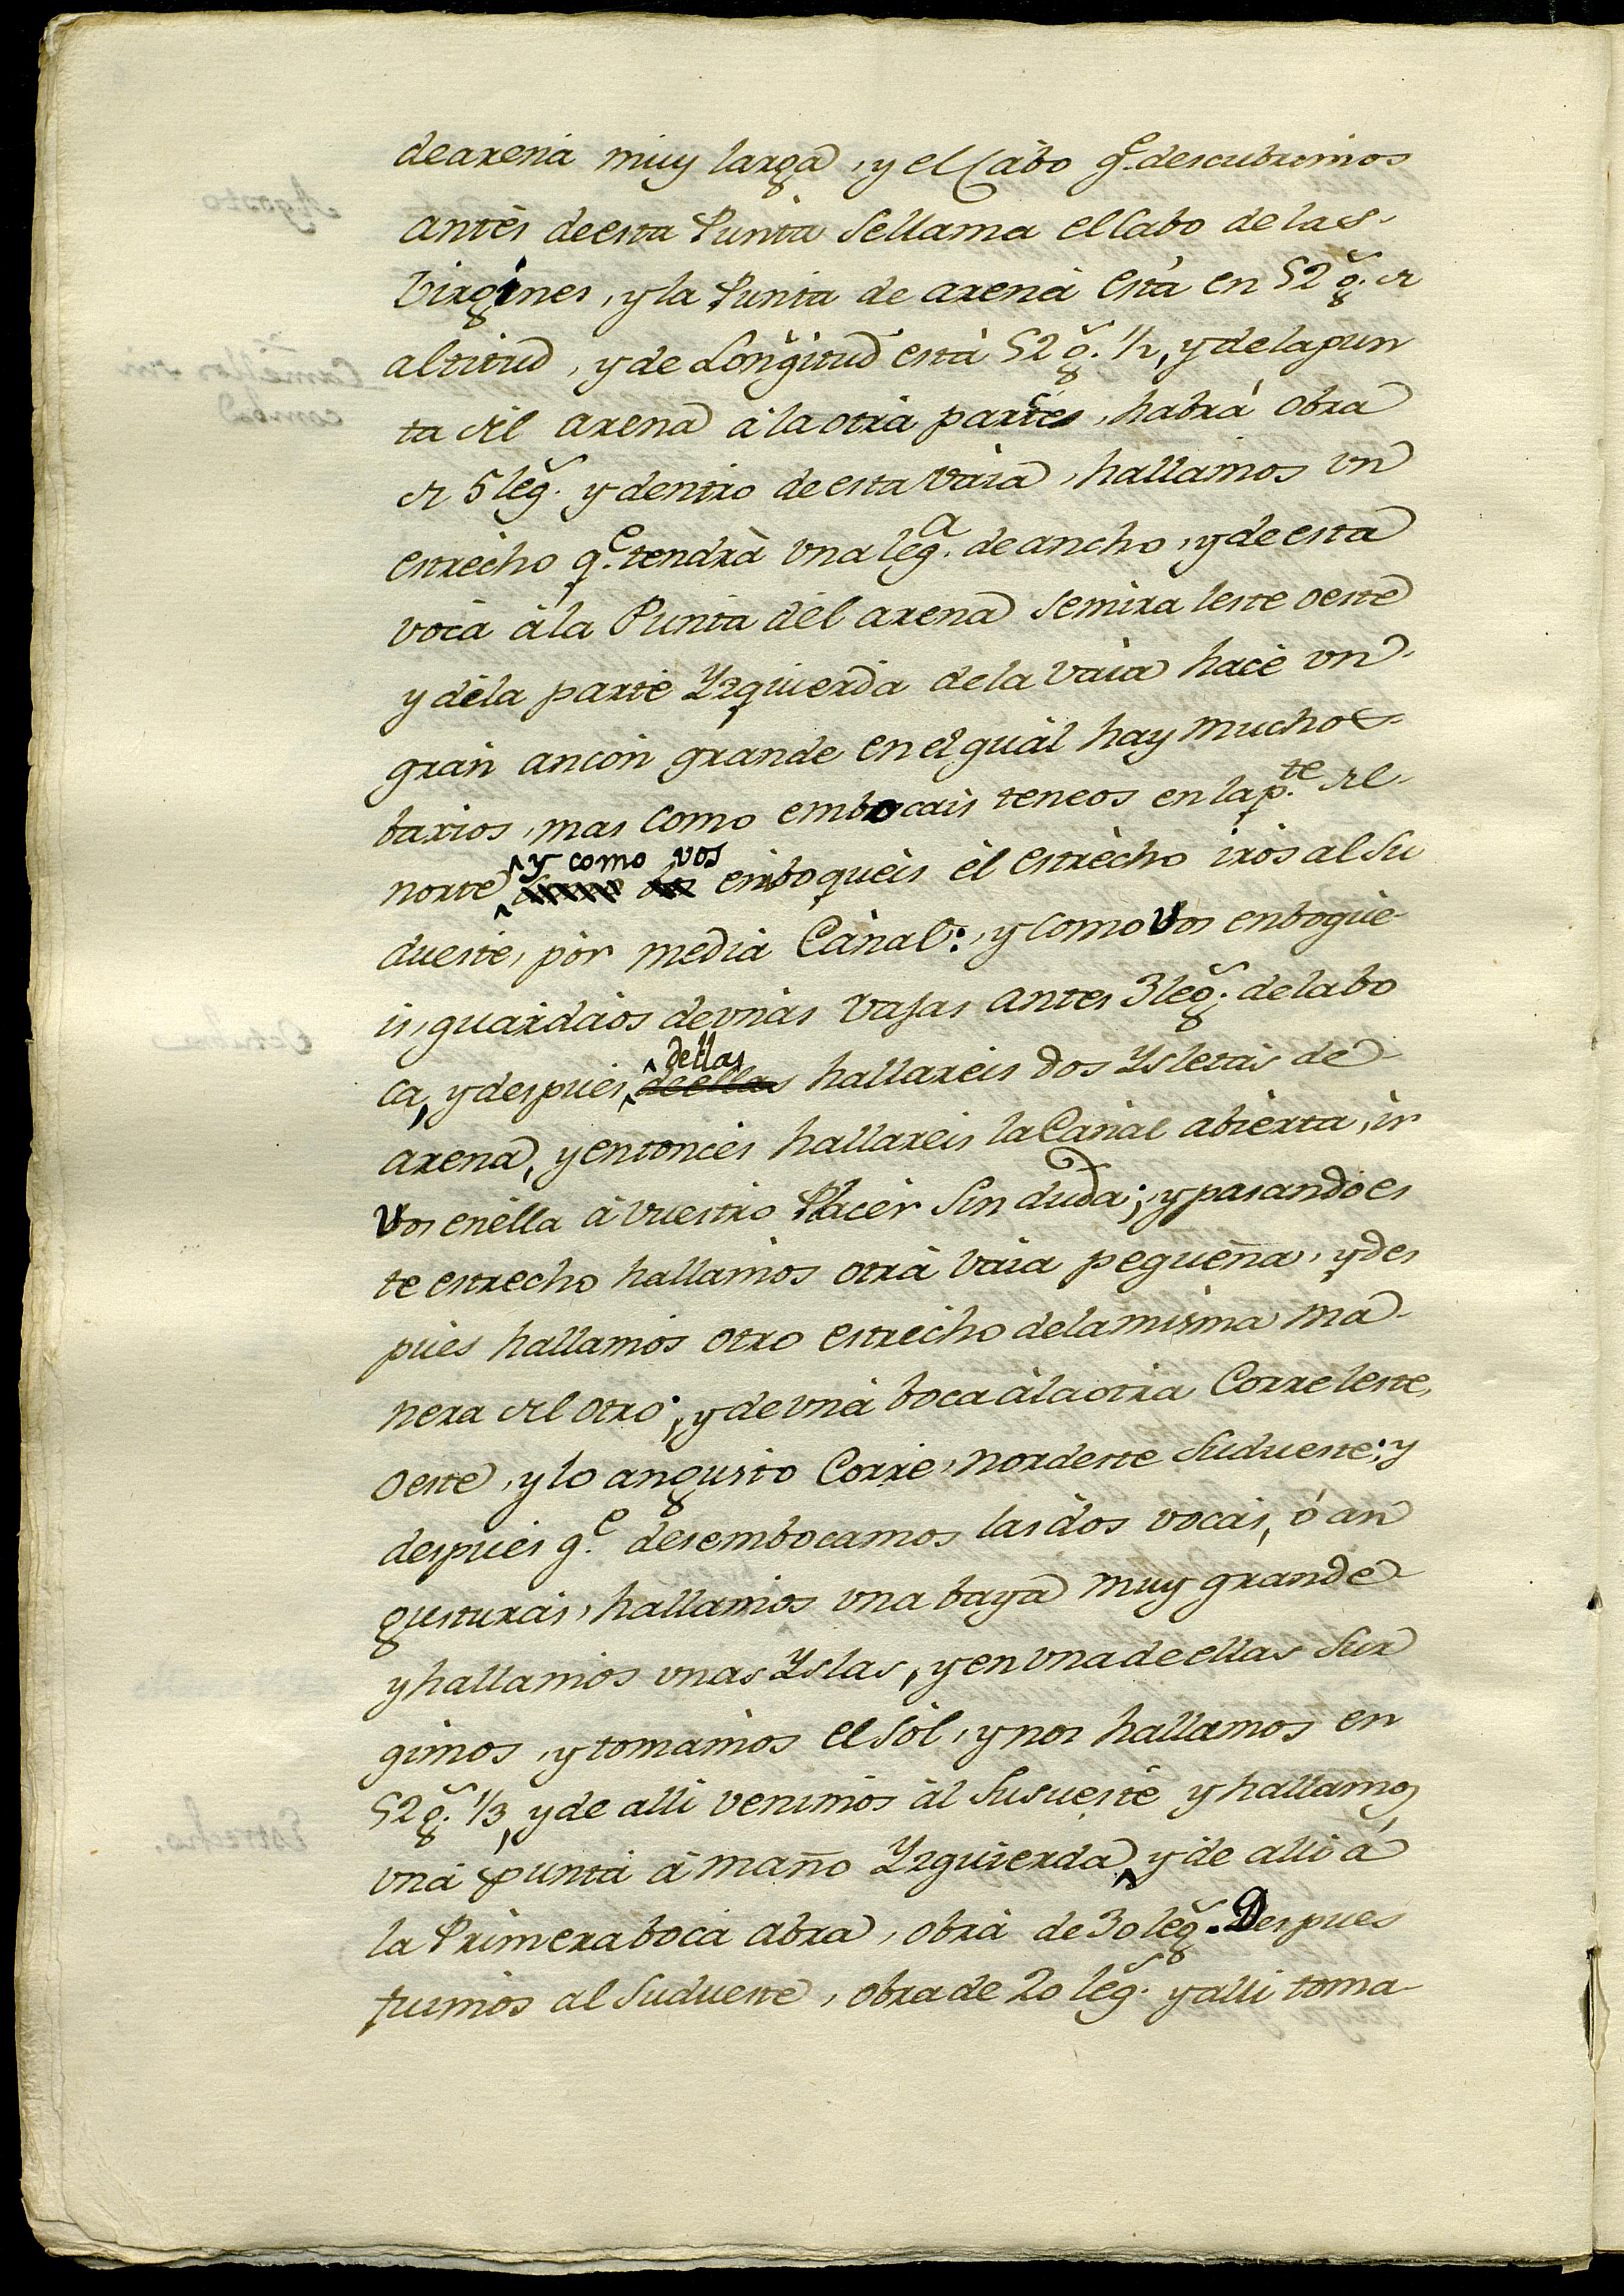 de arena muy larga, y el Cabo q.e descubrimos
antes de esta Punta Se llama el Cabo de las
Virgines, y la Punta de arena está en 52 g. de
altitud, y de Longitud está 52 g. 1/2, y de la pun
ta del arena à la otra parte, habrá obra
de 5 leg. y dentro de esta vaia, hallamos vn
estrecho q.e tendrà vna leg.a de ancho, y de esta
voca à la Punta del arena Se mira leste oeste
y de la parte Yzquierda de la vaia hace vn
gran ancon grande en el qual hay muchos
baxios, mas como embocais teneos en la p.te del
norte y como vos emboqueis el estrecho iròs al Su
dueste, por media Canal:, y como Vos enboque
is, guardàos de vnas vajas antes 3 leg. de la bo
ca, y despues dellas hallareis dos Ysletas de
arena, y entonces hallareis la Canal abierta, ir
Vos en ella à vuestro Placer Sin duda; y pasando es
te estrecho hallamos otra vaia pequeña, y des
pues hallamos otro estrecho de la misma ma
nera del otro; y de vna boca à la otra Corre leste,
oeste, y lo angusto Corre, nordeste Sudueste; y
despues q.e desembocamos las dos vocas, ó an
gusturas, hallamos vna baya muy grande
y hallamos vnas Yslas, y en vna de ellas Sur
gimos, y tomamos el Sol, y nos hallamos en
52 g. 1/3, y de alli venimos al Susueste y hallamos
vna punta à mano Yzquierda, y de alli à
la Primera boca abra, obra de 30 leg. Despues
fuimos al Sudueste, obra de 20 leg. y alli toma